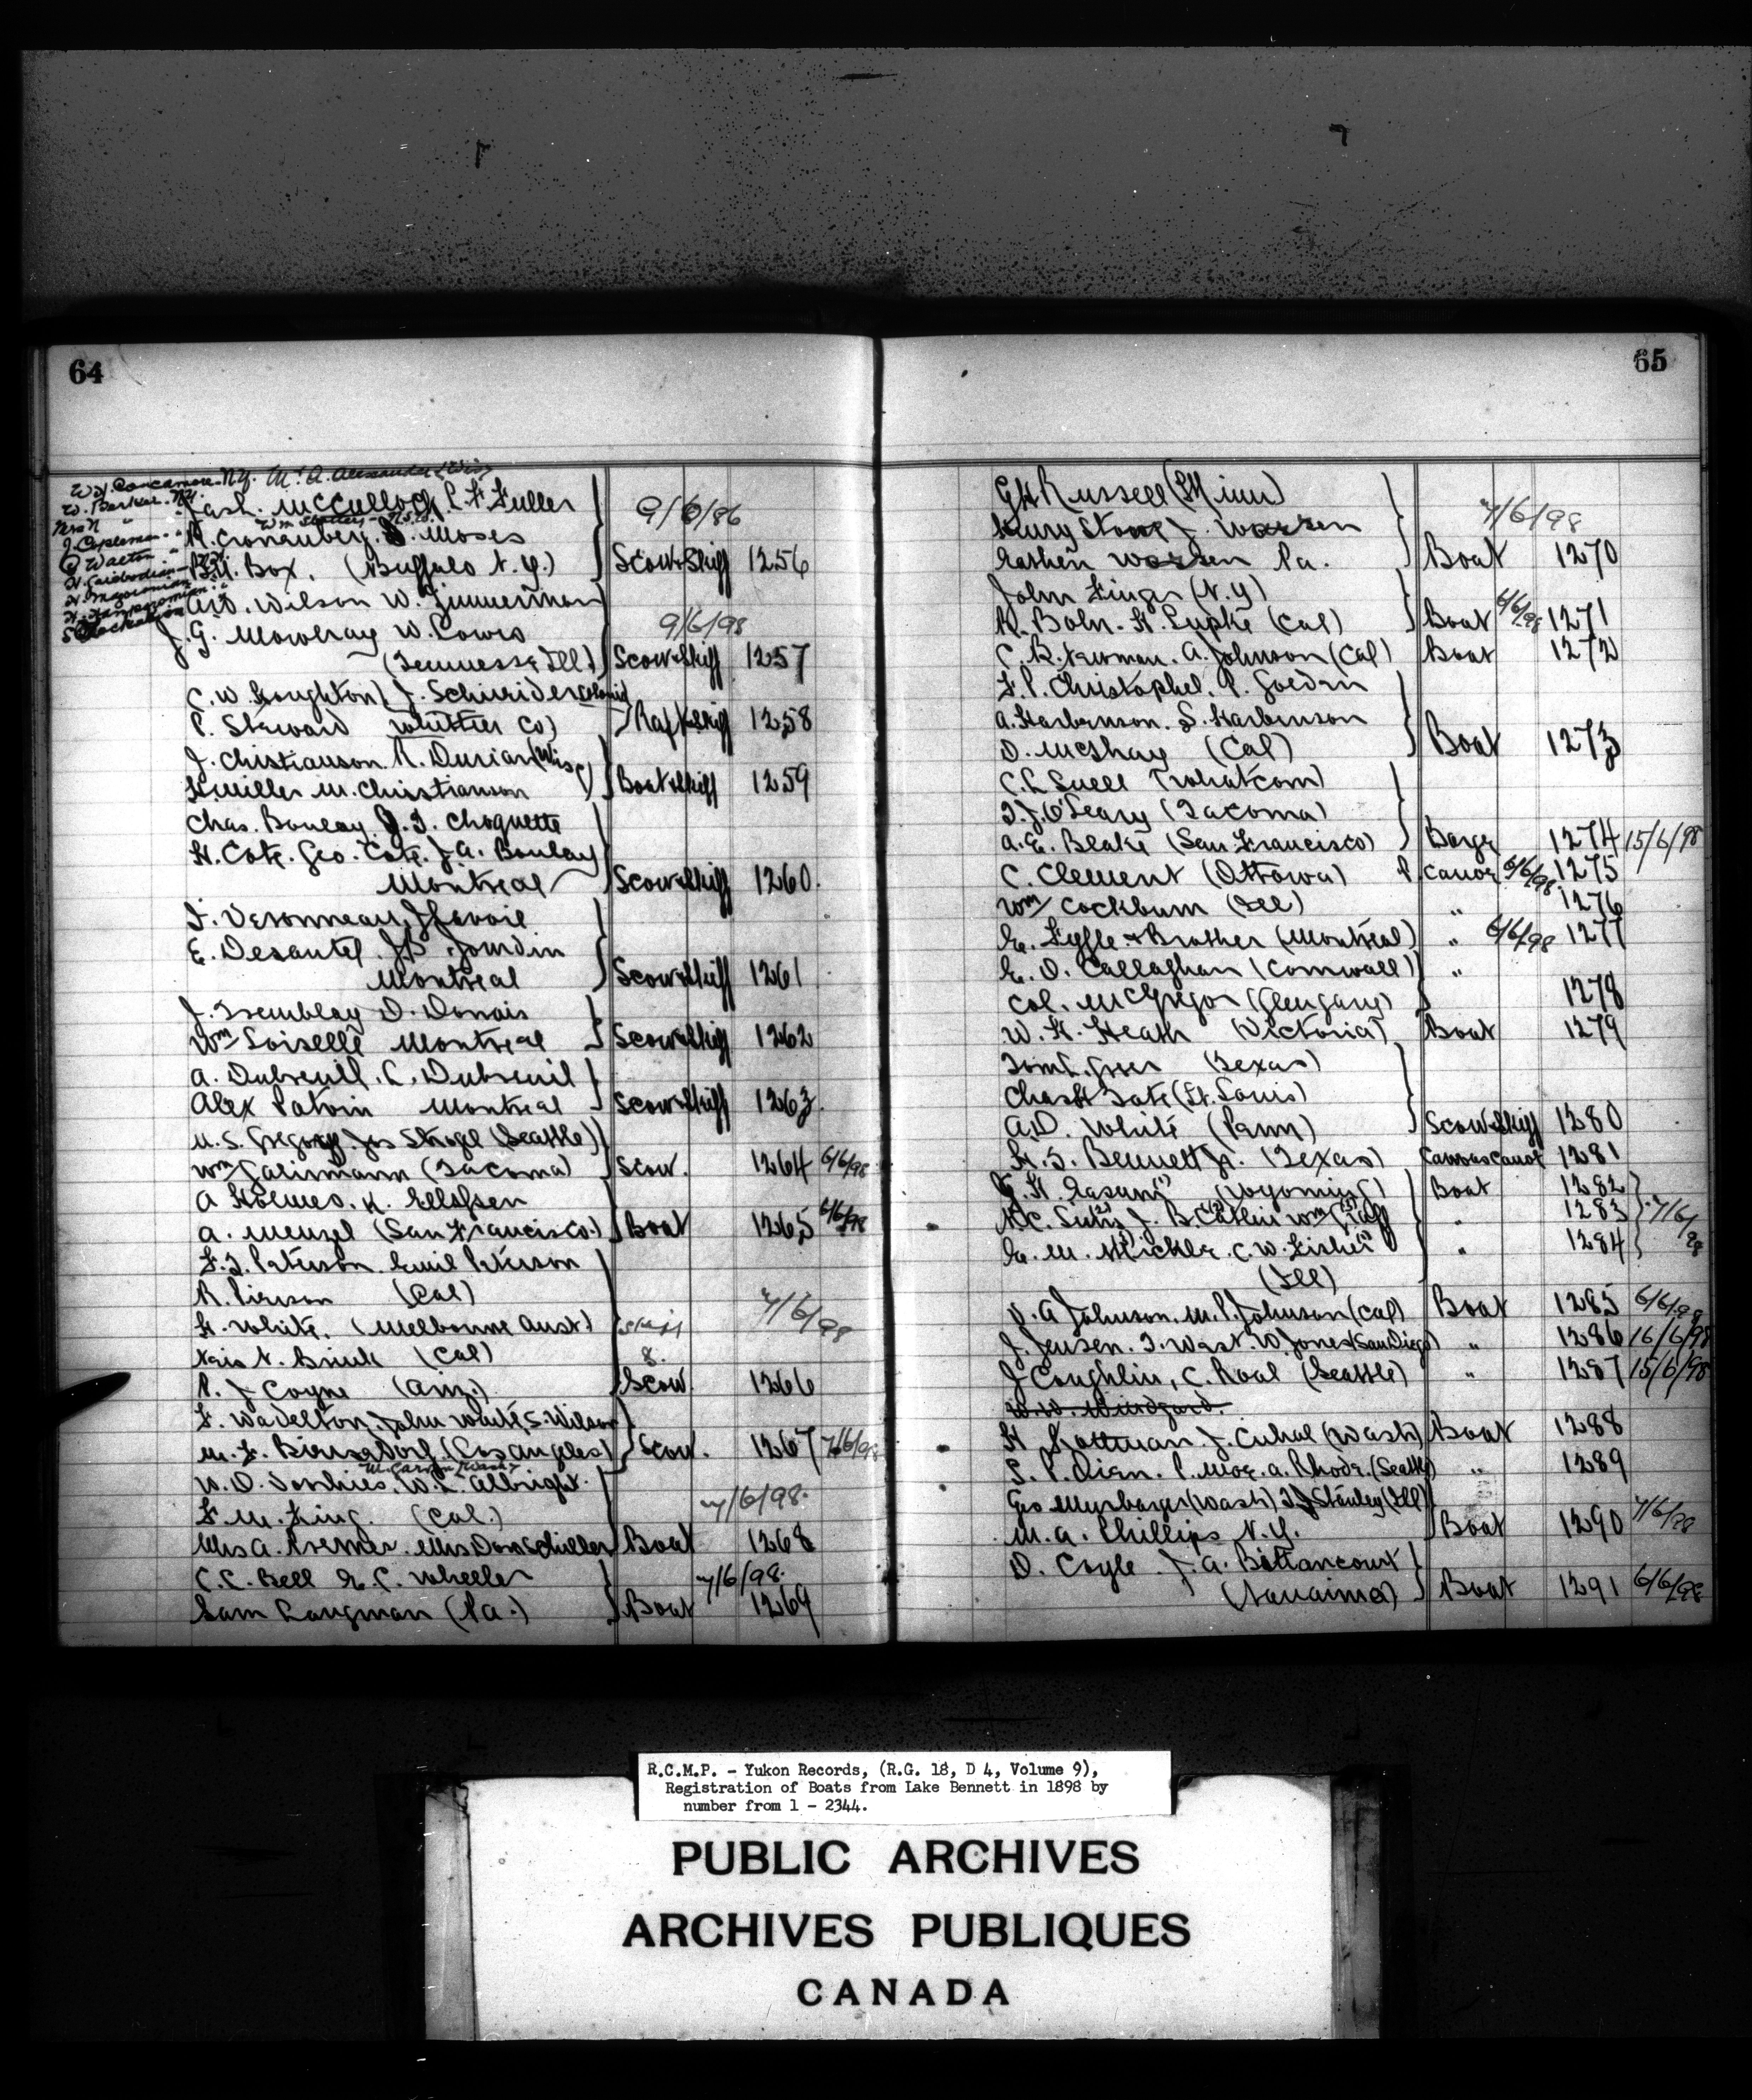 64
W. Barker. N.Y.
J. Copleman "
Walton "
Mc Culloch P. F. Fuller
9/6/86
Moses
Box. (Buffalo N.Y.) Scow & Skiff 1256
Wilson W. Zimmerman
J. G. Mowbray W. Powis 9/6/98
Scow & Skiff 1257
C. W. Houghton J. Schneider
P. Steward Whittier Co) Raft & Skiff 1258
J. Christianson. A. Durian (Wisc)
H. Miller M. Christianson Boat & Skiff 1259
Chas. Boulay. J. T. Choquette
H. Cote. Geo. Cote. J. A. Boulay
Montreal Scow & Skiff 1260.
E. Desautel. J. B. Jourdin
Montreal Scow & Skiff 1261
J. Tremblay D. Donais
Wm Loiselle Montreal Scow & Skiff 1262
A. Dubreuil. C. Dubreuil
Alex Patvin Montreal Scow & Skiff 1263.
(Seattle)
Wm (Tacoma) Scow. 1264 6/6/98
A Holmes. K. Ellefsen
A. Menzel (San Francisco.) Boat 1265 6/6/98
F. J. Peterson. Emil Peterson
R. Pierson (Cal)
H. White. (Melbourne Aust) Skiff 7/6/98
N. Brink (Cal) &
P. J Coyne (Ariz.) Scow 1266
F. Wadelton, John White, S. Wilson
M. F. (Los Angeles) Scow. 1267 7/6/98
W. L. Albright.
F. M. King. (Cal.) 7/6/98.
Mrs A. Kremer. Mrs Dora Schiller Boat 1268
C. C. Bell E. C. Wheeler 7/6/98.
Sam Langman (Pa.) Boat 1269
65
G H Russell (Minn)
Henry Stowe J. Warren 7/6/98
Warren Pa. Boat 1270
John Finger (N.Y)
R. Bohn. H. Lupke (Cal) Boat 6/6/98 1271
C. R. Newman. A. Johnson (Cal) Boat 1272
F. P. Christophel. P. Goedin
A. Harbinson. S. Harbinson
D. McShay (Cal) Boat 1273
C. L Snell (Whatcom)
T. J. O'Leary (Tacoma)
A. E. Blake (San Francisco) Barge 1274 15/6/98
C. Clement (Ottawa) P. Canoe 6/6/98 1275
Wm Cockburn (Ill) " 1276
E. Lyffe & Brother (Montreal) " 6/6/98 1277
E. O. Callaghan (Cornwall) "
Col. McGregor (Glengary) 1278
W. H. Heath (Victoria) Boat 1279
(Texas)
Chas H Tate (St. Louis)
A. D. White (Penn) Scow & Skiff 1280
H. S. Bennett Jr. (Texas) Canvas Canoe 1281
(Wyoming) Boat 1282
J. B. Catlin Wm " 1283 7/6/98
E. M. Mickle. C. W. Fisher " 1284
(Ill)
O. A Johnson. M. P. Johnson (Cal) Boat 1285 6/6/98
J. Jensen. T. West. W. Jones (San Diego) " 1286 16/6/98
J Coughlin, C. Roal (Seattle) " 1287 15/6/98
H Kottman. J. Cuhal (Wash) Boat 1288
P. Moe. A. Rhode. (Seattle) " 1289
Geo Mursbarger (Wash) T J Stanley (Ill)
M. A. Phillips N.Y. Boat 1290 7/6/98
D. Coyle. J. A. Bittancourt
(Nanaimo) Boat 1291 6/6/98
R.C.M.P. - Yukon Records, (R.G. 18, D 4, Volume 9),
Registration of Boats from Lake Bennett in 1898 by
number from 1 - 2344.
PUBLIC ARCHIVES
ARCHIVES PUBLIQUES
CANADA